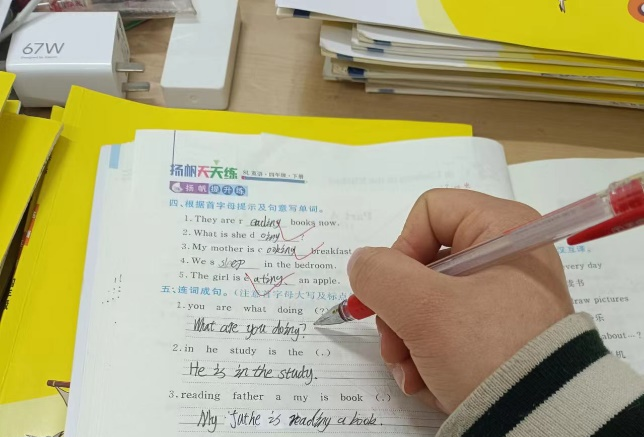 67W
扬帆天天练 SL 英语·四年级·下册
扬帆提升练
四、根据首字母提示及句意写单词。
1. They are r eading books now.
2. What is she d oing ?
3. My mother is c ooking breakfast
4. We s sleep in the bedroom.
5. The girl is e ating an apple.
五、连词成句。(注意首字母大写及标点
1. you are what doing (?)
What are you doing?
2. in he study is the (.)
He is in the study.
3. reading father a my is book (.)
My fathe is reading a book.
very day
raw pictures
乐
about…?
机